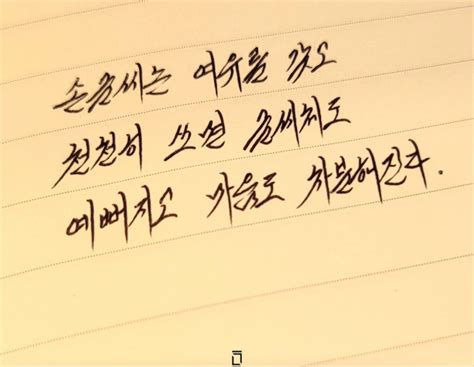 손글씨는 여유를 갖고
천천히 쓰면 글씨체도
예뻐지고 마음도 차분해진다.